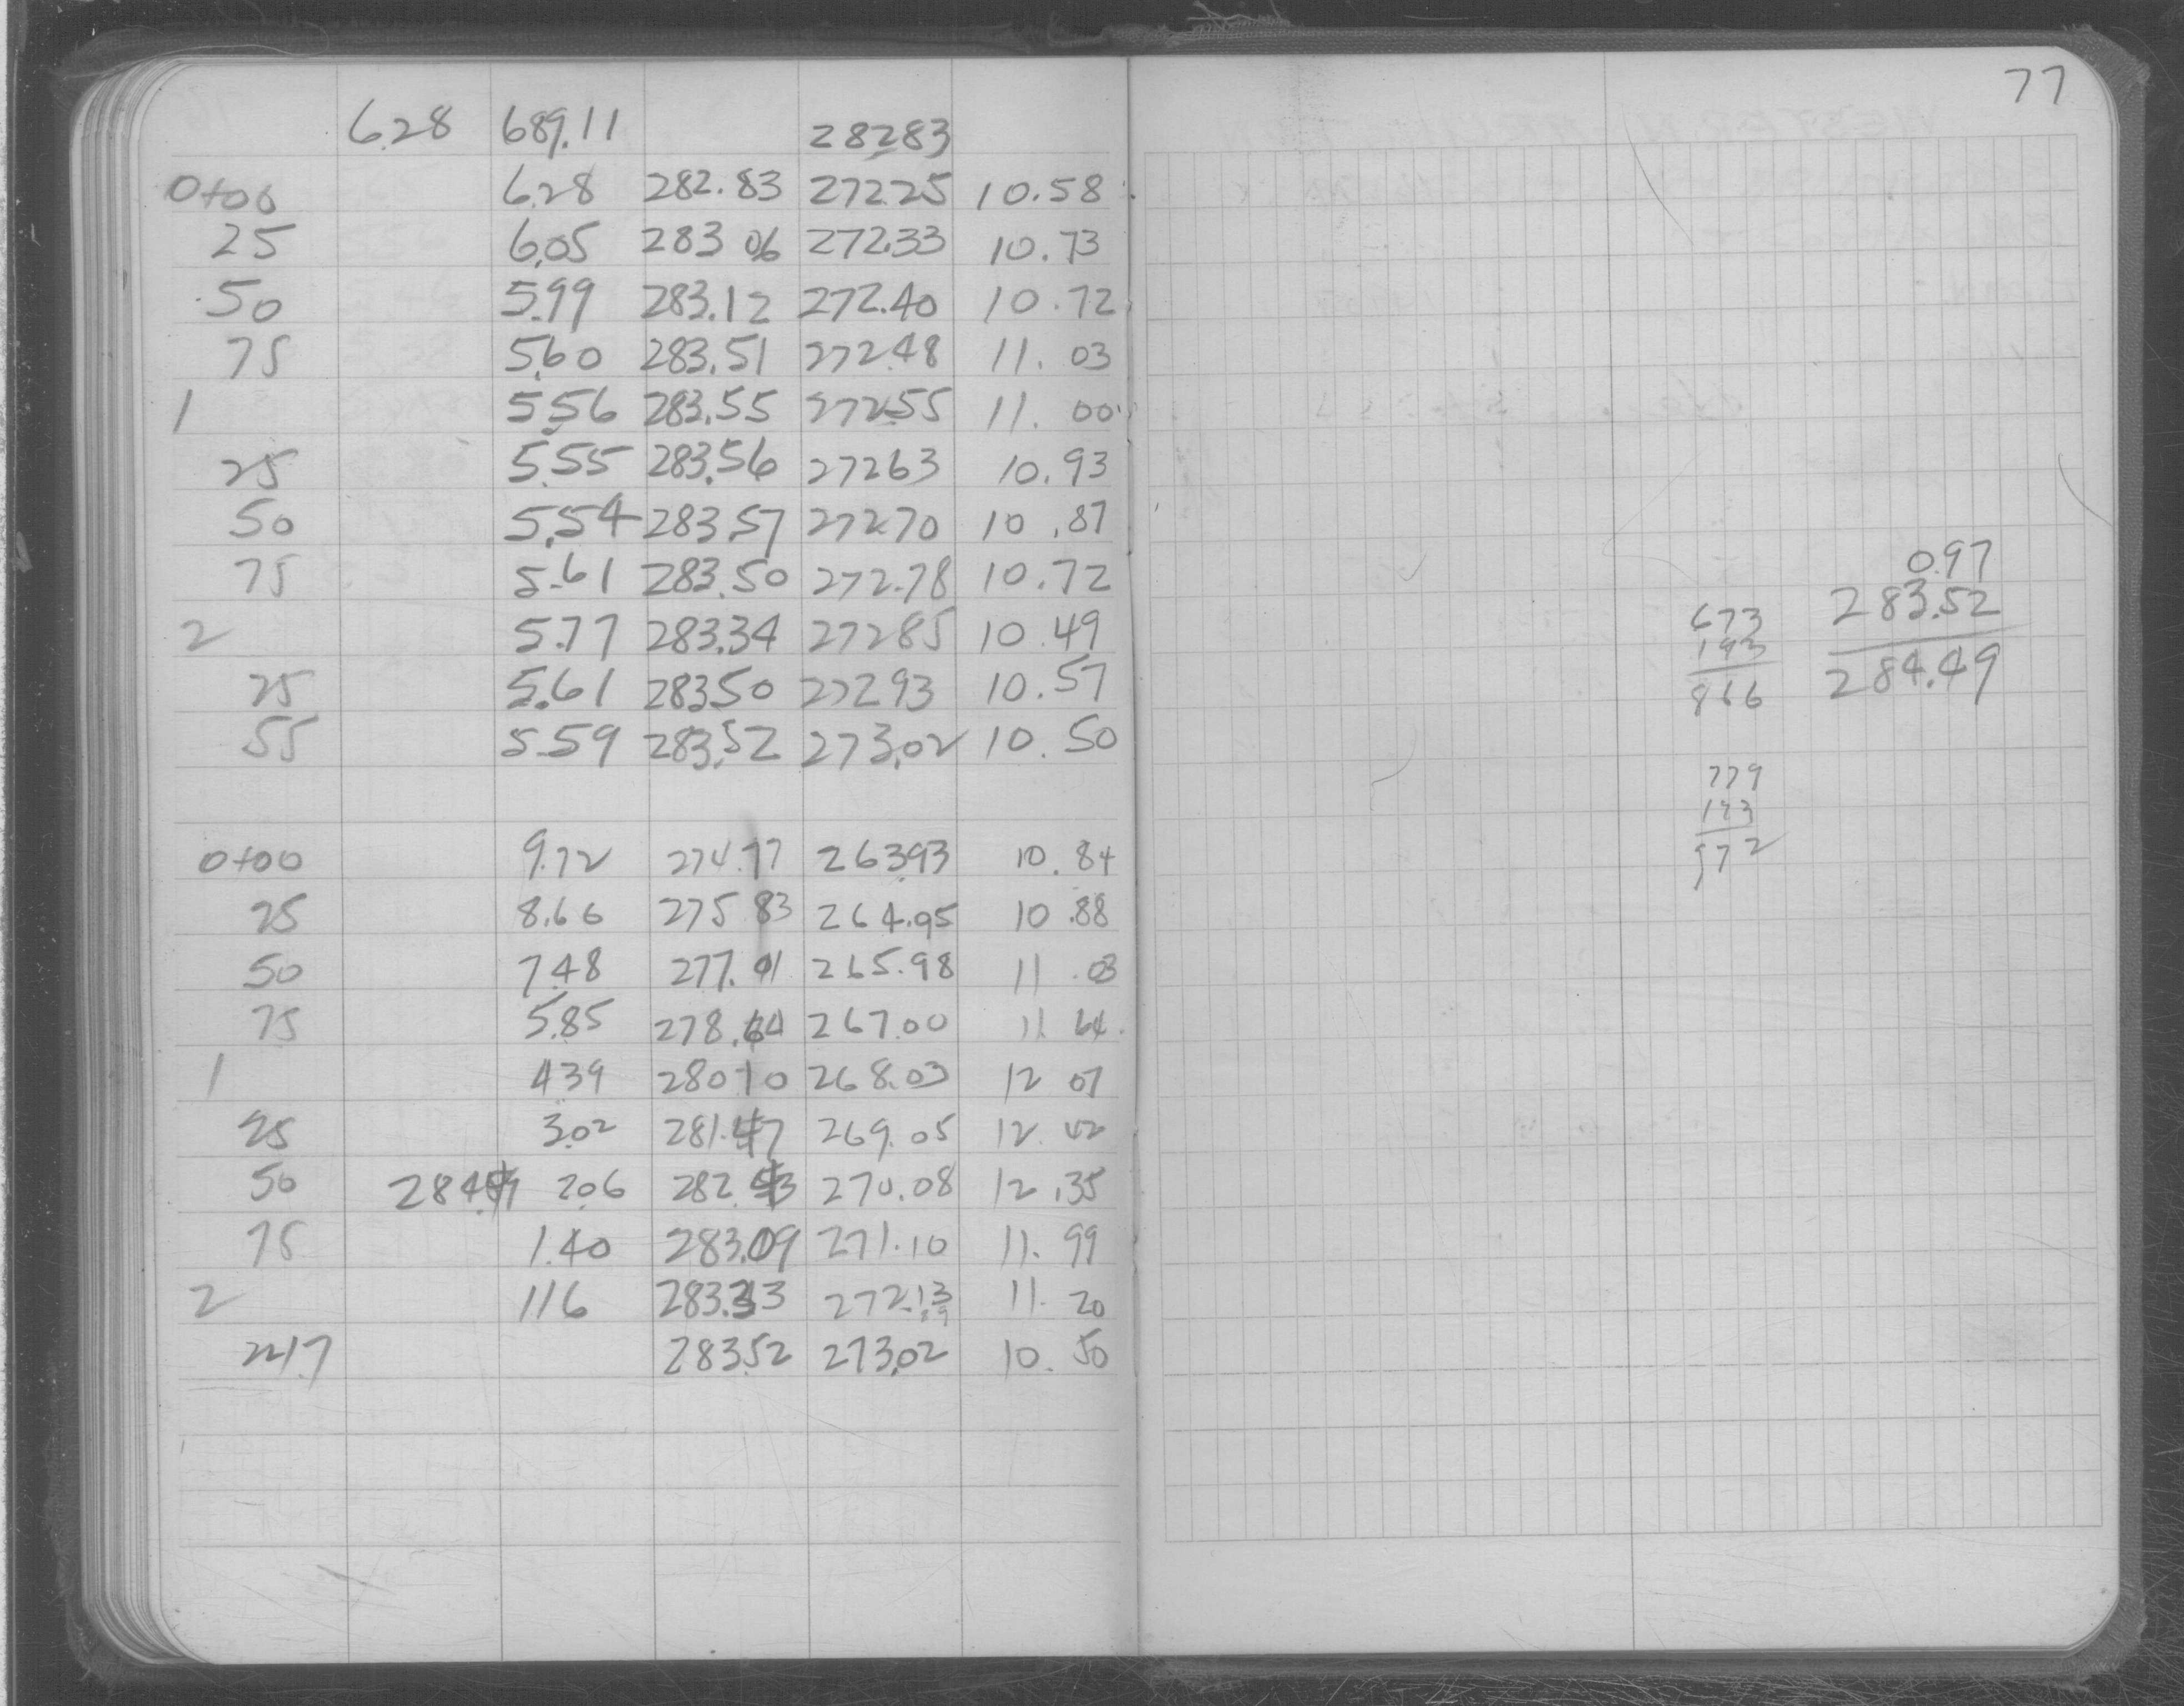 77
6.28 689.11 282.83
0+00 6.28 282.83 272.25 10.58
25 6.05 283 06 272.33 10.73
50 5.99 283.12 272.40 10.72
75 5.60 283.51 272.48 11. 03
1 5.56 283.55 272.55 11. 00
25 5.55 283.56 272 63 10.93
50 5.54 283.57 272.70 10 .87
75 5.61 283.50 272.78 10.72
2 5.77 283.34 272 85 10 .49
25 5.61 283.50 272 93 10.57
55 5.59 283.52 273.02 10. 50
0+00 9.72 274.77 263.93 10. 84
25 8.66 275 83 264.95 10 .88
50 7.48 277. 01 265.98 11 .03
75 5.85 278.64 267.00 11. 64
1 4 39 280 10 268.03 12 07
25 3.02 281.47 269. 05 12. 42
50 284.49 2.06 282.43 270.08 12 .35
75 1.40 283.09 271.10 11. 99
2 1 16 283.33 272.13 11. 20
2+17 283.52 273.02 10. 50
0.97
283.52
284.49
673
193
866
779
193
972